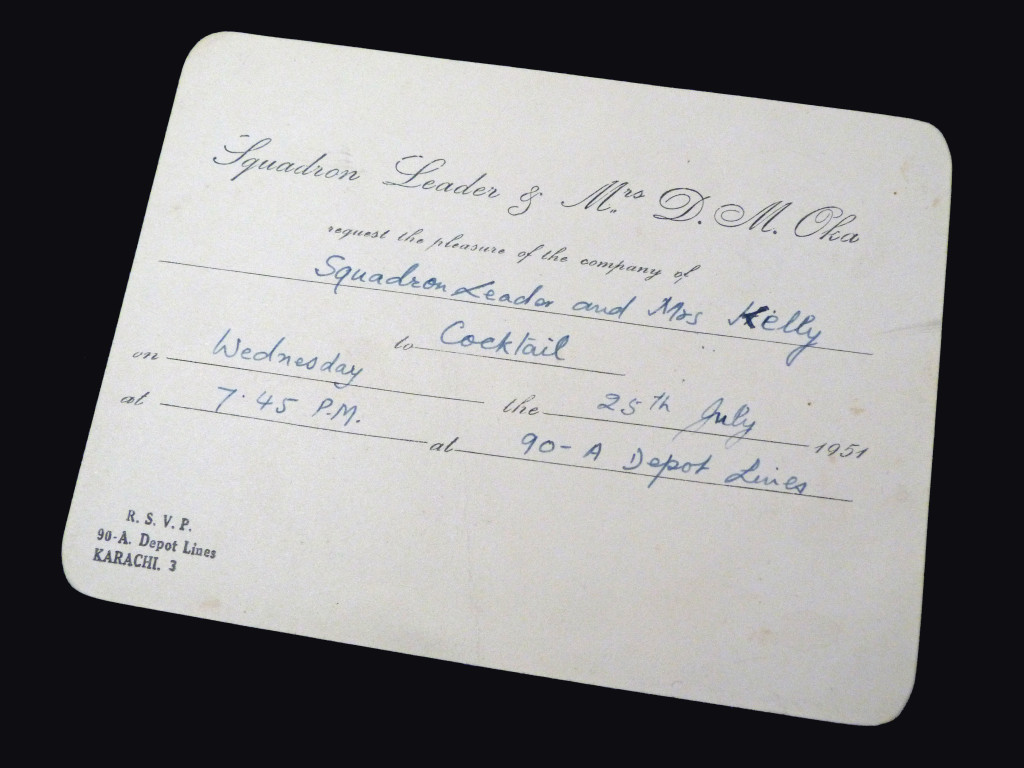 Squadron Leader & Mrs. D. M. Oka
request the pleasure of the company of
Squadron Leader and Mrs Kelly
to Cocktail
on Wednesday the 25th July 1951
at 7.45 P.M. at 90-A Depot Lines
R. S. V. P.
90-A. Depot Lines
KARACHI. 3